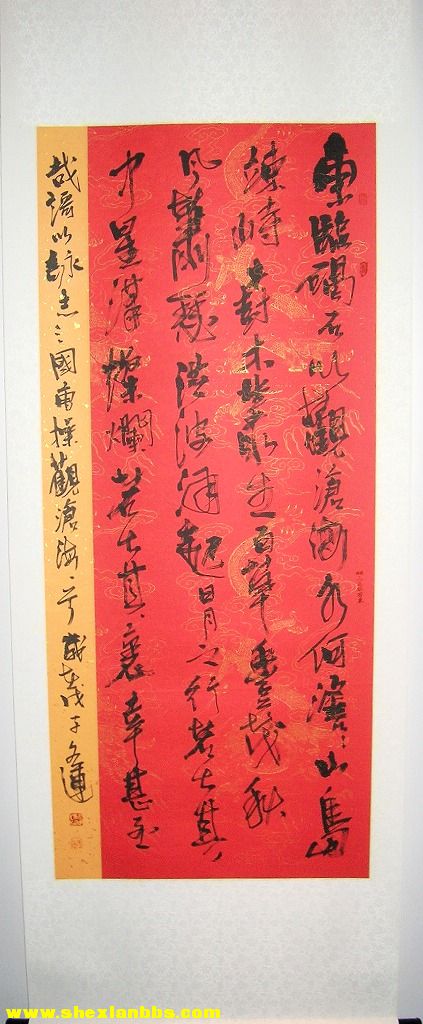 東臨碣石以觀滄海水何澹〻山島
竦峙樹木叢生百草豐茂秋
风蕭瑟洪波湧起日月之行若出其
中星漢燦爛若出其裏幸甚至
哉謌以詠志三國曹操觀滄海歲在戊子
www.shexianbbs.com